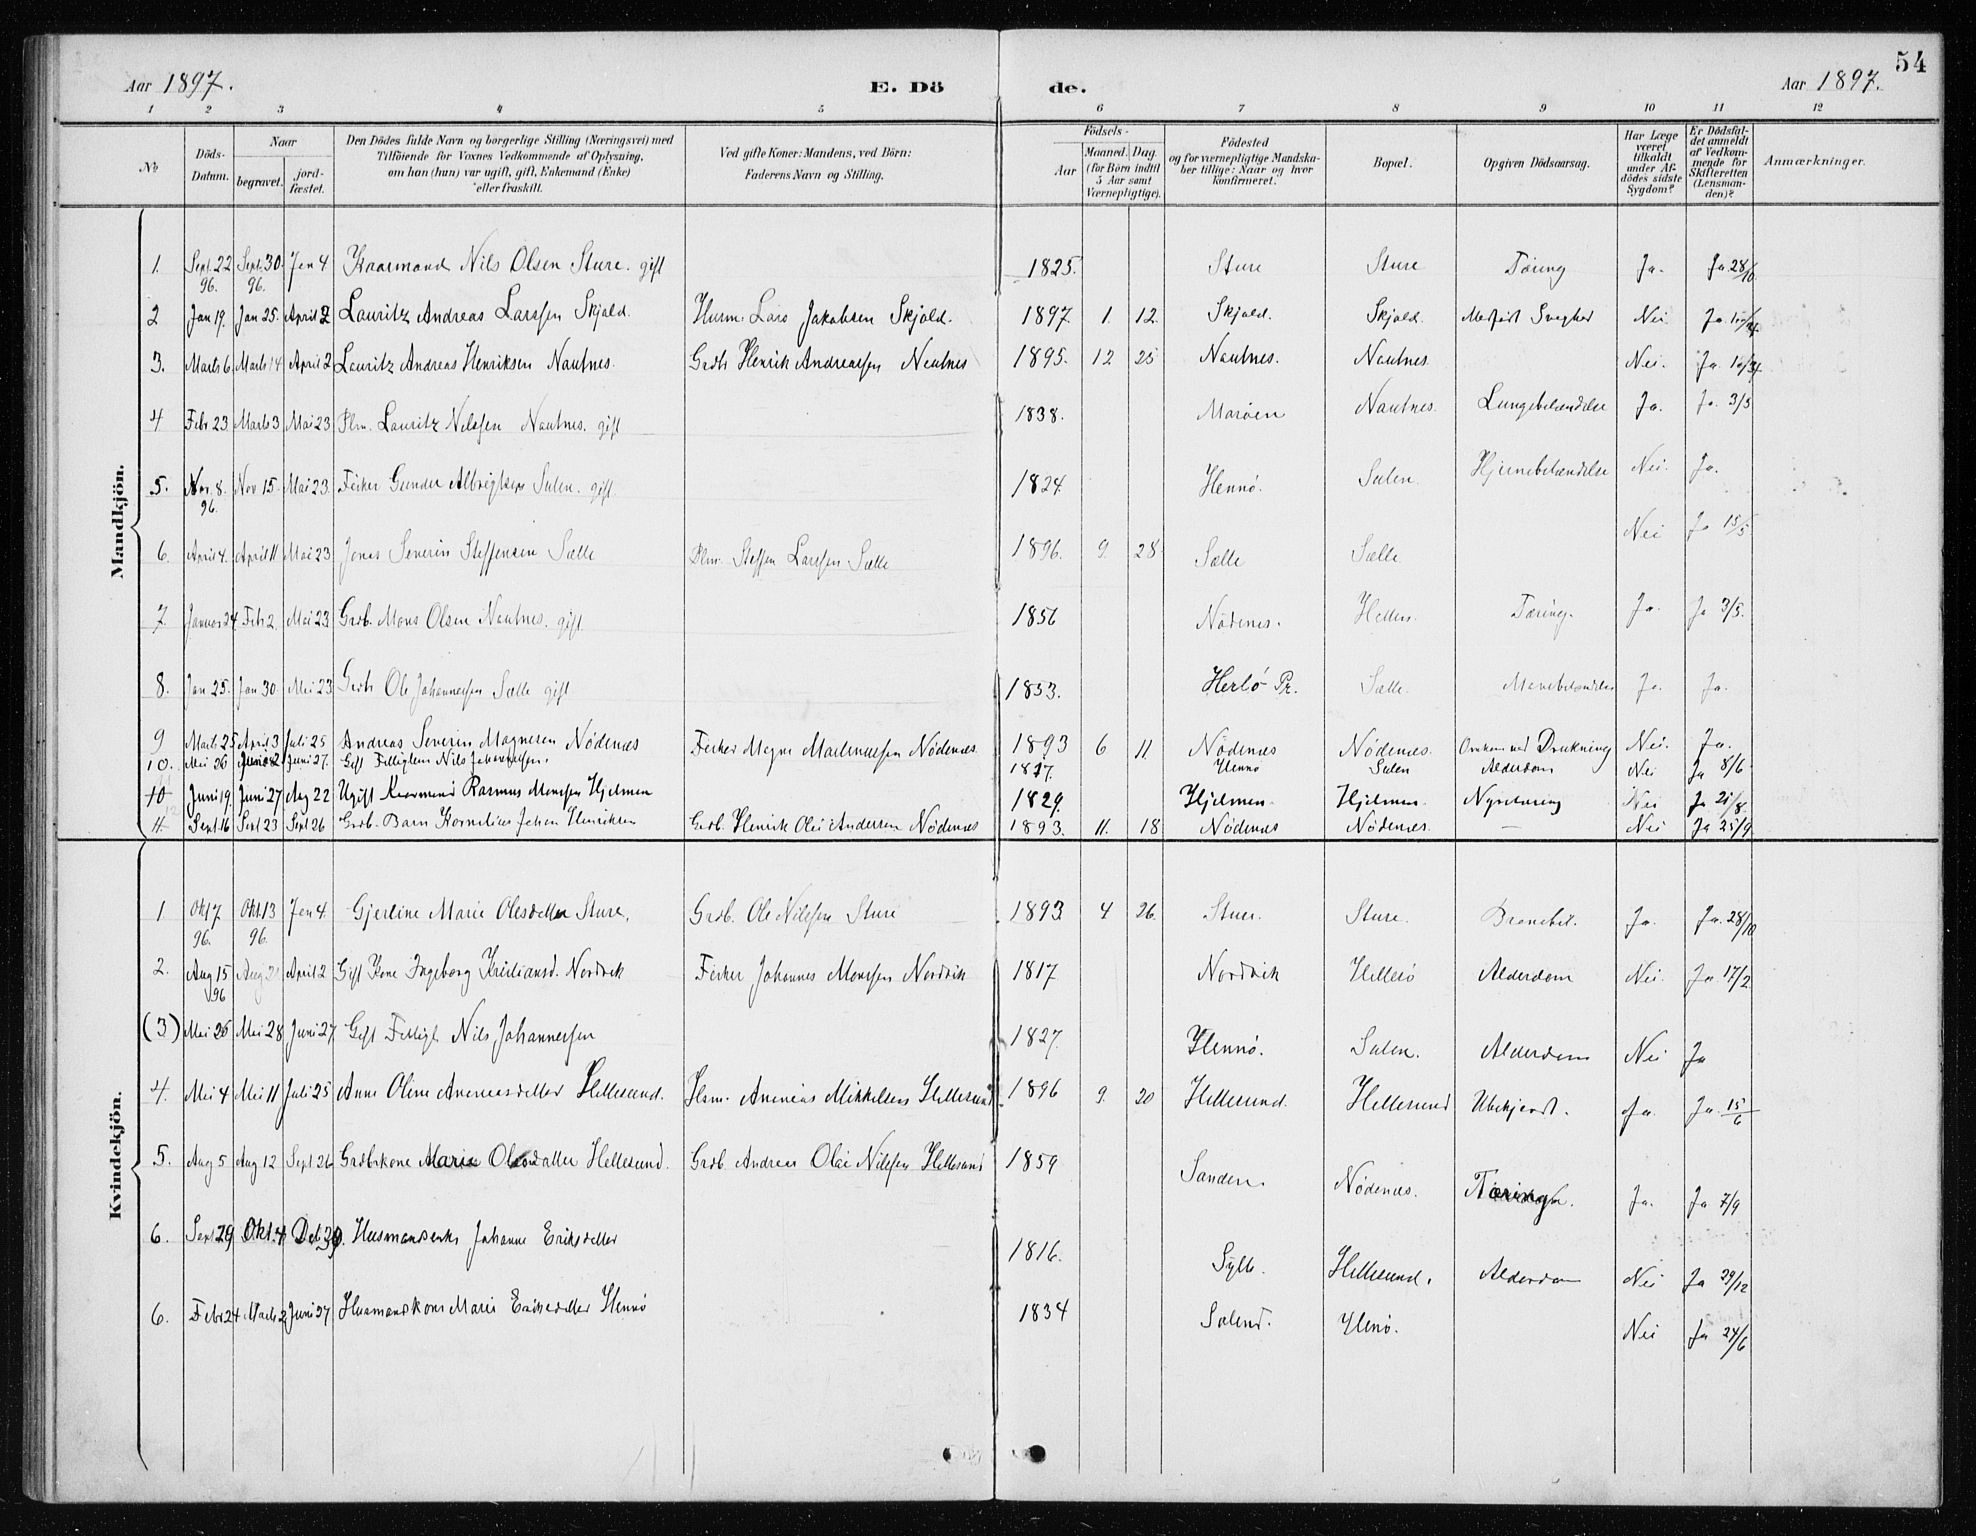 54
Aar 1897. E. Dö de. Aar 1897.
1 2 3 4 5 6 7 8 9 10 11 12
No. Döds-Datum. Naar begravet. jord-fæstet. Den Dödes fulde Navn og borgerlige Stilling (Næringsvei) med Tilföiende for Voxnes Vedkommende af Oplysning, om han (hun) var ugift, gift, Enkemand (Enke) eller fraskilt. Ved gifte Koner: Mandens, ved Börn: Faderens Navn og Stilling. Födsels- Aar Maaned. Dag. (for Börn indtil 5 Aar samt Værnepligtige). Födested og for værnepligtige Mandskaber tillige: Naar og hvor konfirmeret. Bopæl. Opgiven Dödsaarsag. Har Læge været tilkaldt under Afdödes sidste Sygdom? Er Dödsfaldet anmeldt af Vedkommende for Skifteretten (Lensmanden)? Anmærkninger.
Mandkjön.
1. Sept. 22 96. Sept. 30. 96. Jan 4 Kaarmand Nils Olsen Sture. gift 1825. Sture Sture Tæring Ja. Ja 28/10
2 Jan 19. Jan 25. April 2 Lauritz Andreas Larssen Skjold. Husm. Lars Jakobsen Skjold. 1897 1. 12. Skjold. Skjold. Medfødt Svaghed Nei. Ja
3. Marts 6. Marts 14 April 2 Lauritz Andreas Henriksen Nautnes. Grdb Henrik Andreassen Nautnes 1895. 12 25 Nautnes. Nautnes Nei. Ja
4 Febr 23 Marts 3 Mai 23 Plm. Lauritz Nilssen Nautnes. gift 1838. Marøen Nautnes. Lungebetændelse Ja. Ja. 3/5
5. Nov. 8. 96. Nov 15. Mai 23. Fisker Gunder Albregtsen Sulen. gift 1824. Hennø. Sulen. Hjernebetændelse Nei. Ja.
6. April 4. April 11 Mai 23 Jonas Severin Steffensen Sælle Plm. Steffen Larssen Sælle 1896. 9. 28 Sælle Sælle. Nei Ja 15/5.
7. Januar 24. Febr 2. Mai 23 Grdb. Mons Olsen Nautnes. gift 1856 Nødenes. Hellen. Tæring. Ja. Ja 3/5.
8. Jan 25. Jan 30. Mai 23 Grdb Ole Johannessen Sælle gift 1853. Herlø Pr. Sælle. Mavebetændelse Ja. Ja.
9 Marts 25 April 3 Juli 25 Andreas Severin Magnesen Nødenæs Fisker Magne Martinussen Nødenæs. 1893 6 11. Nødenæs Nødenæs. Omkom ved Drukning Nei. Ja.
10. Mai 26 Juni 27. Gift Fattiglem Nils Johannessen. 1827. Hennø Sulen Alderdom Nei Ja 8/6
10 Juni 19. Juni 27 Aug 22 Ugift Kaarmand Rasmus Monssen Hjelmen 1829. Hjelmen. Hjelmen. Nei Ja 21/8.
11 Sept. 16 Sept 23 Sept 26 Grdb. Barn Kornelius Johan Henriksen Grdb. Henrik Olai Andersen Nødenæs 1893. 11. 18 Nødenæs Nødenæs. — Nei Ja 25/9
Kvindekjön.
1 Okt 7. 96. Okt. 13 96. Jan 4. Gjertine Marie Olesdatter Sture. Grdb. Ole Nilssen Sture 1893. 4 26. Sture. Sture. Bronchit. Ja. Ja. 28/10
2. Aug 15 96 Aug April 2 Gift Kone Ingeborg Kristiansd. Nordvik Fisker Johannes Monssen Nordvik 1817 Nordvik Hillesø Alderdom Nei. Ja 17/2
(3) Mai 26 Mai 28 Juni 27 Gift Fattigl. Nils Johannessen 1827. Hennø. Sulen. Alderdom Nei Ja
4. Mai 4 Mai 11 Juli 25 Anna Oline Ananiasdatter Hellesund. Hsm. Ananias Mikkelsen Hellesund 1896 9. 20 Hellesund. Hellesund Ubekjendt. Ja. Ja. 15/6
5. Aug 5 Aug 12 Sept 26 Grdbskone Marie Olesdatter Hellesund. Grdb. Andreas Olai Nilssen Hellesund 1859 Sanden. Nødenæs. Tæring. Ja. Ja 7/9
6. Sept 29 Okt. 4 Husmandsenke Johanne Eriksdatter 1816. Sylte. Hellesund. Alderdom Nei Ja 29/12
6. Febr 24 Marts 2 Juni 27 Husmandskone Marie Eriksdatter Hennø 1834 Solend. Henø. Nei Ja 24/6